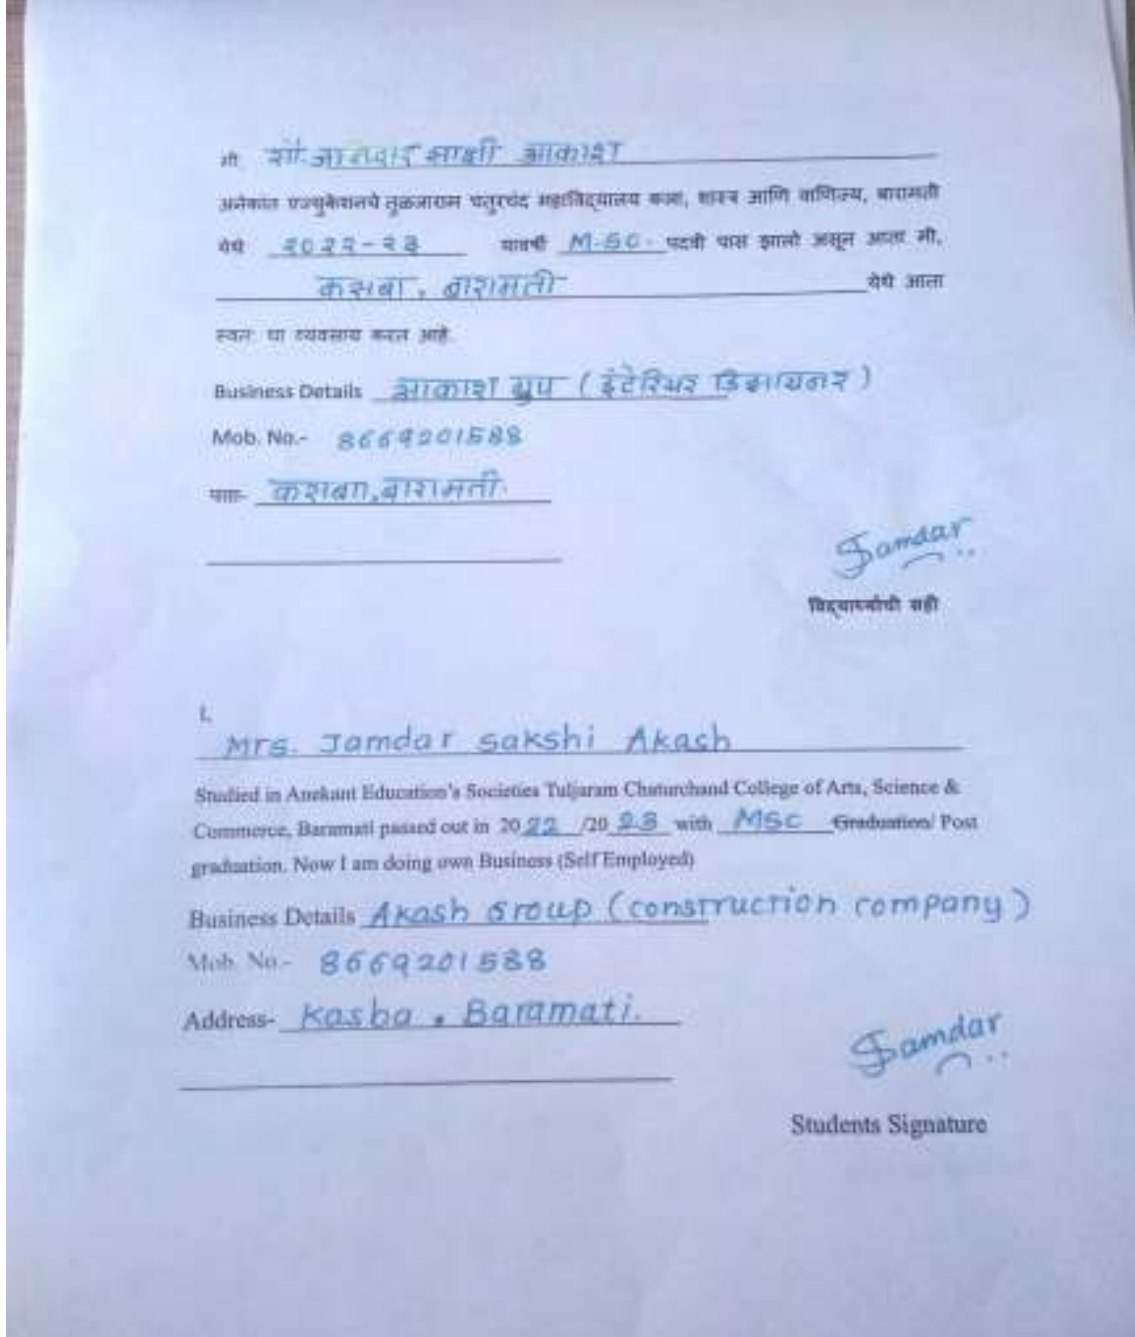 मी, सौ. जामदार साक्षी आकाश
अनेकांत एज्युकेशनचे तुळजाराम चतुरचंद महाविद्यालय कला, शास्त्र आणि वाणिज्य, बारामती
येथे २०२२-२३ यावर्षी M.SC. पदवी पास झालो असून आता मी,
कसबा, बारामती येथे आता
स्वतः चा व्यवसाय करत आहे.
Business Details आकाश ग्रुप (इंटेरियर डिझायनर)
Mob. No.- 8669201588
पत्ता- कसबा, बारामती.
Jamdar
विद्यार्थ्याची सही
I,
Mrs. Jamdar sakshi Akash
Studied in Anekant Education's Societies Tuljaram Chaturchand College of Arts, Science &
Commerce, Baramati passed out in 2022 /2023 with MSC Graduation/ Post
graduation. Now I am doing own Business (Self Employed)
Business Details Akash Group (construction company)
Mob. No.- 8669201588
Address- Kasba, Baramati.
Jamdar
Students Signature